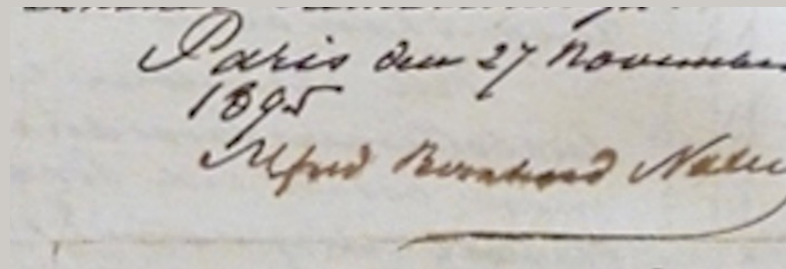 Paris den 27 November
1895
Alfred Bernhard Nobel